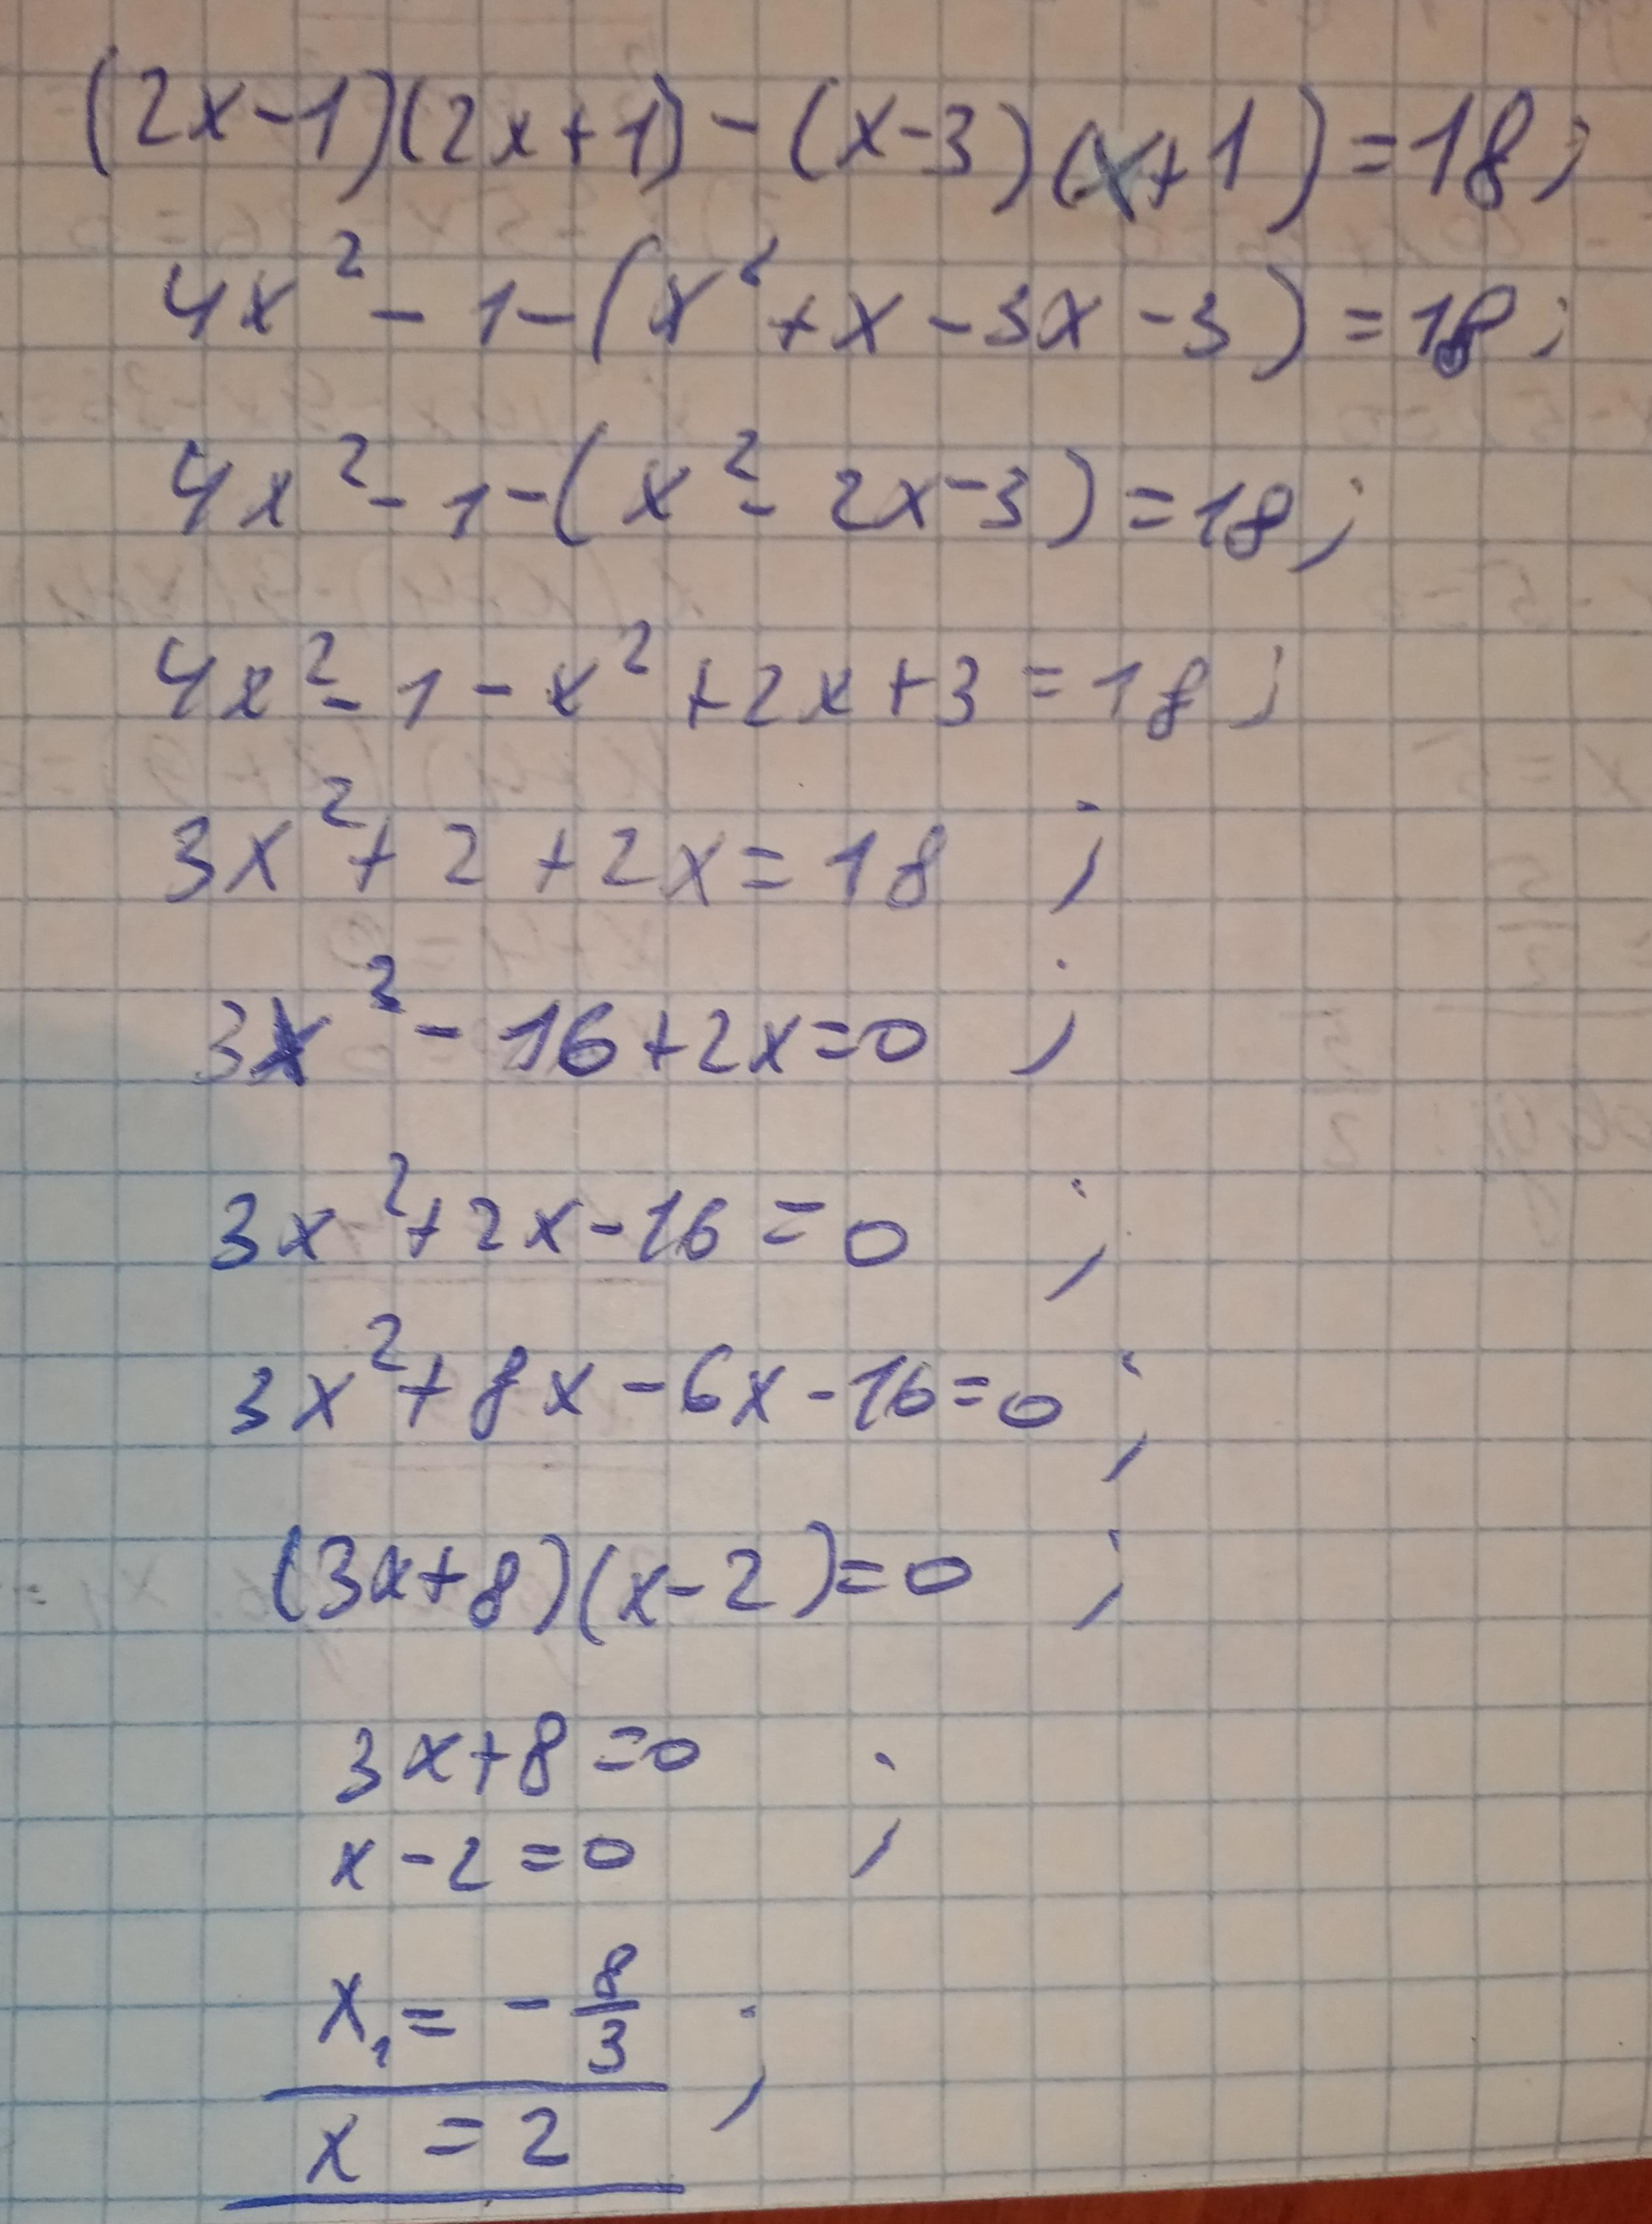 (2x-1)(2x+1)-(x-3)(x+1)=18;
4x²-1-(x²+x-3x-3)=18;
4x²-1-(x²-2x-3)=18;
4x²-1-x²+2x+3=18;
3x²+2+2x=18;
3x²-16+2x=0;
3x²+2x-16=0;
3x²+8x-6x-16=0;
(3x+8)(x-2)=0;
3x+8=0
x-2=0;
x₁=-8/3;
x=2